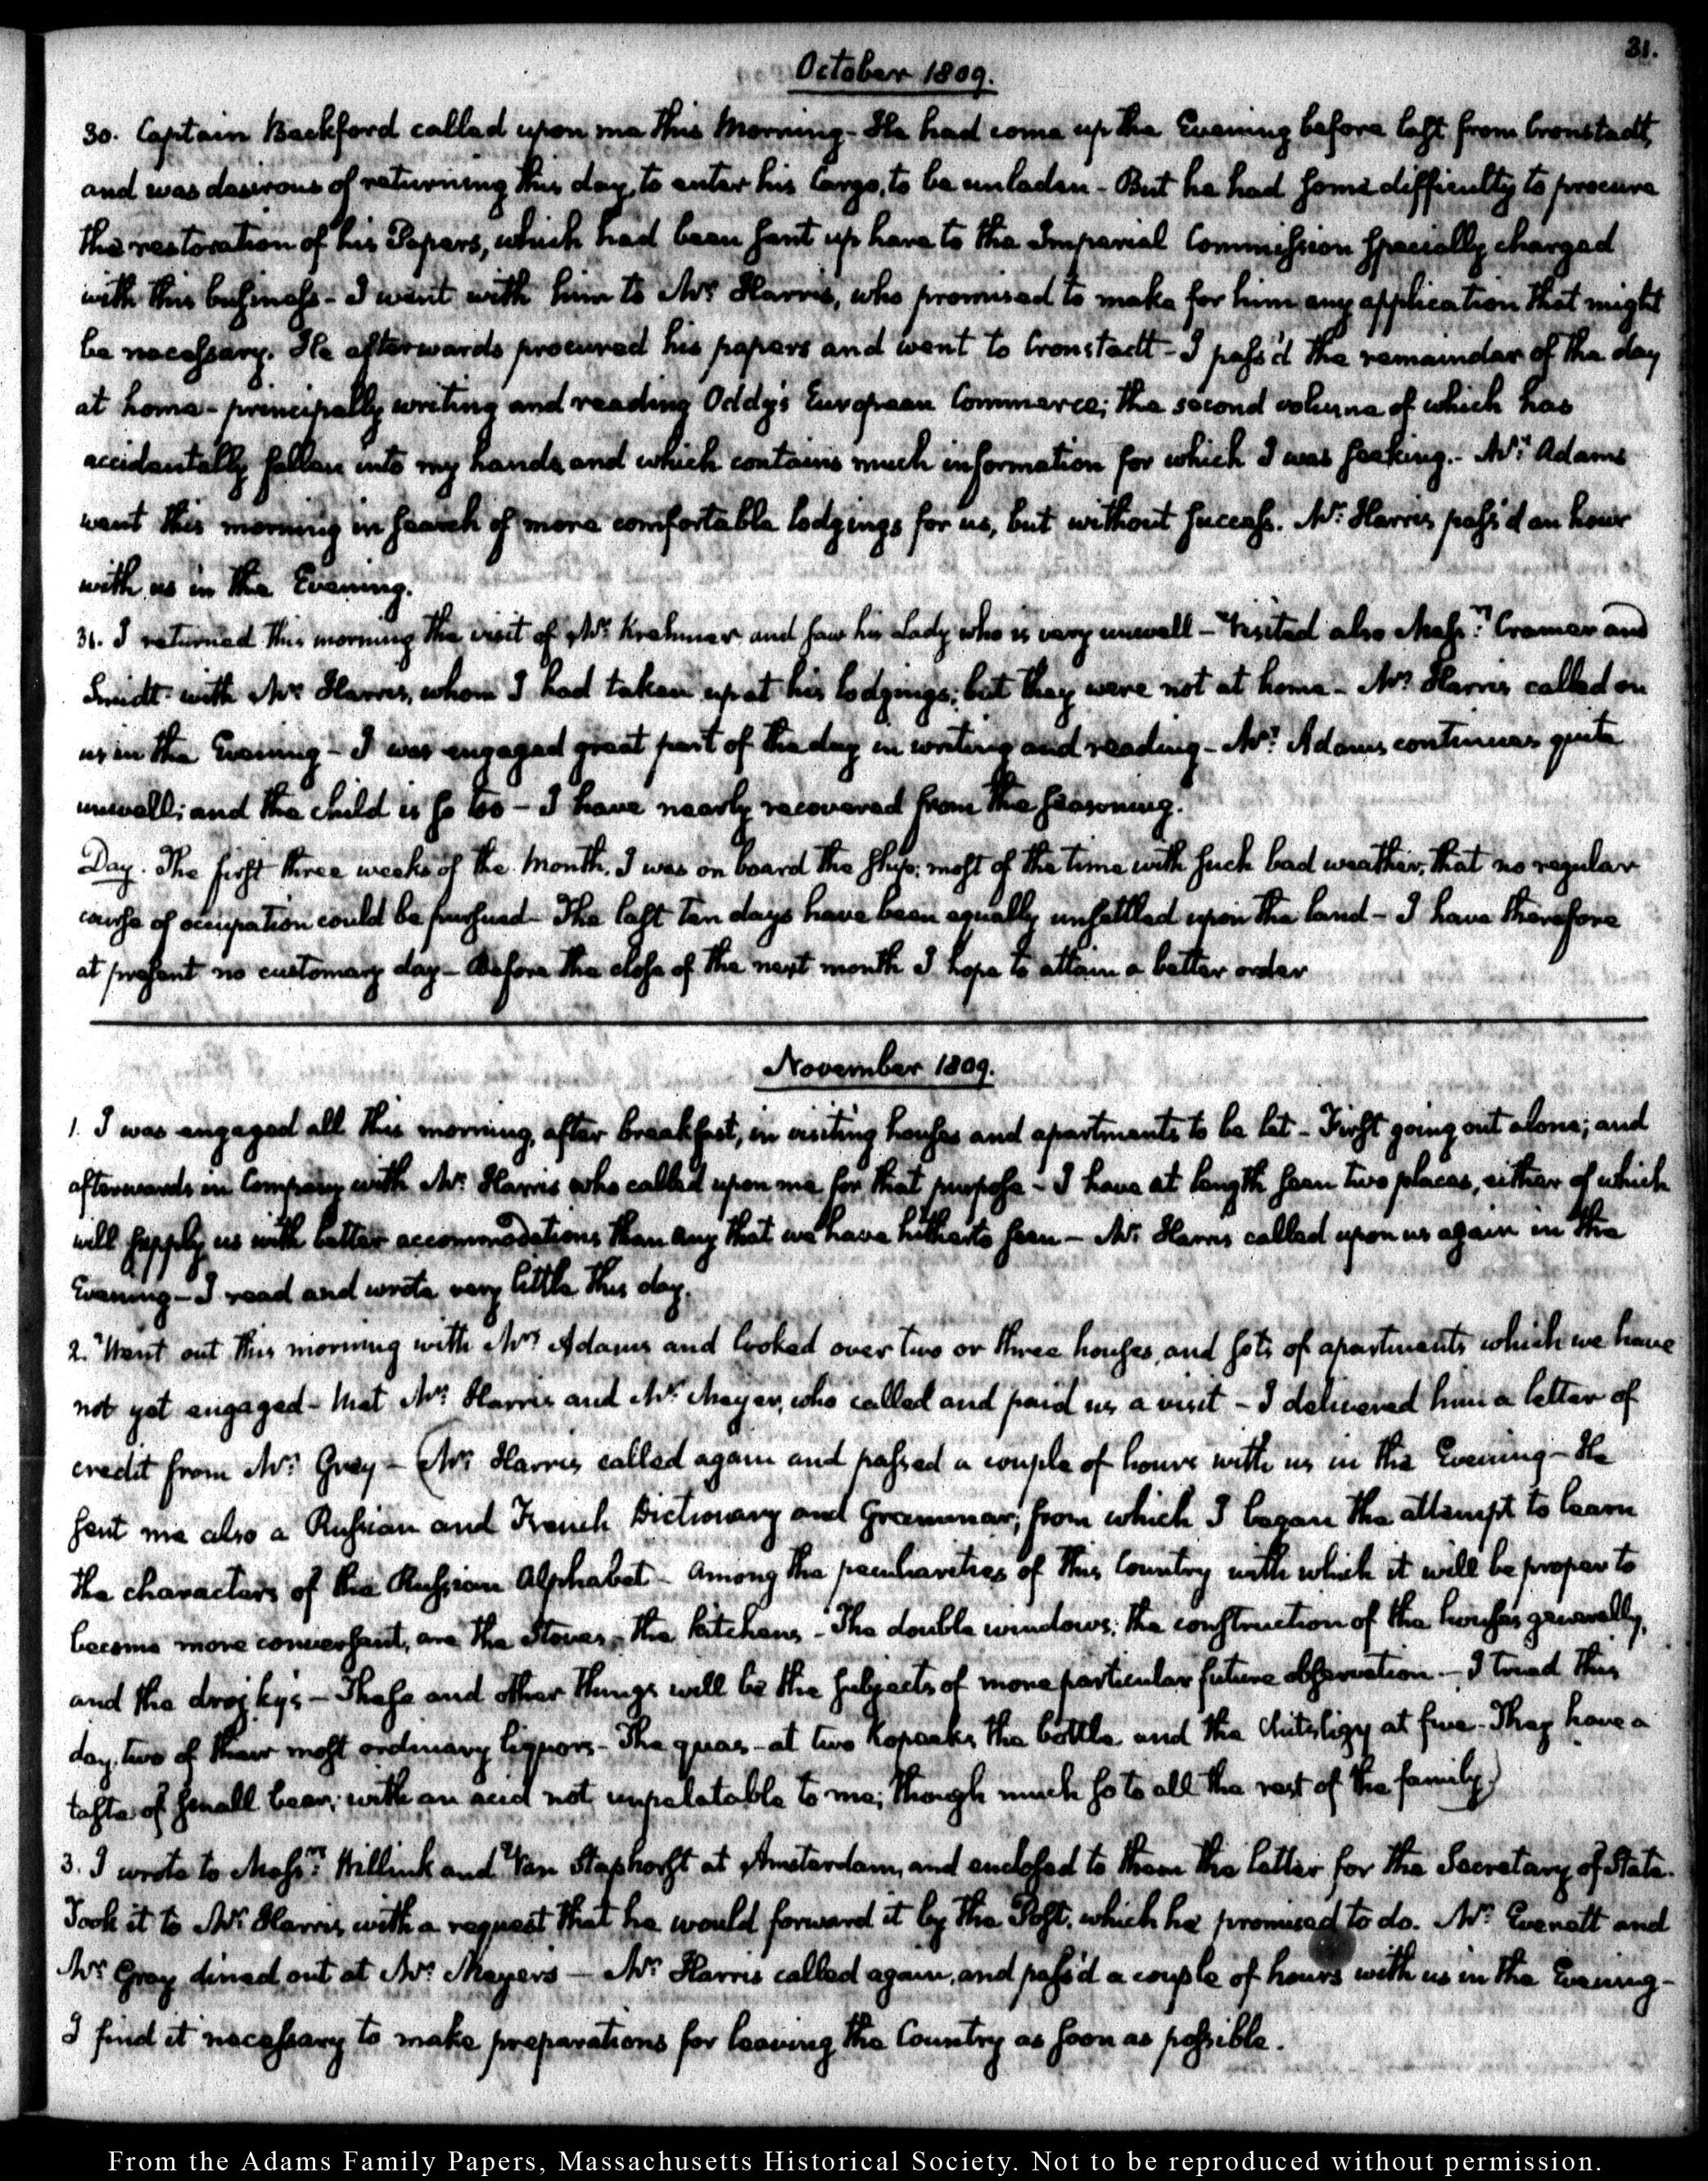 31.
October 1809.
30. Captain Beckford called upon me this Morning - He had come up the Evening before last from Cronstadt,
and was desirous of returning this day, to enter his Cargo, to be unladen - But he had some difficulty to procure
the restoration of his Papers, which had been sent up here to the Imperial Commission specially charged
with this business - I went with him to Mr. Harris, who promised to make for him any application that might
be necessary. He afterwards procured his papers and went to Cronstadt - I pass'd the remainder of the day
at home - principally writing and reading Oddy's European Commerce; the second volume of which has
accidentally fallen into my hands, and which contains much information for which I was seeking. - Mrs. Adams
went this morning in search of more comfortable lodgings for us, but without success. Mr. Harris pass'd an hour
with us in the Evening.
31. I returned this morning the visit of Mr. Krehmer and saw his Lady who is very unwell - Visited also Messrs. Cramer and
Smidt with Mr. Harris, whom I had taken up at his lodgings; but they were not at home - Mr. Harris called on
us in the Evening - I was engaged great part of the day in writing and reading - Mrs. Adams continues quite
unwell; and the child is so too - I have nearly recovered from the seasoning.
Day. The first three weeks of the Month, I was on board the ship; most of the time with such bad weather, that no regular
course of occupation could be pursued - The last ten days have been equally unsettled upon the land - I have therefore
at present no customary day - Before the close of the next month I hope to attain a better order
November 1809.
1. I was engaged all this morning, after breakfast, in visiting houses and apartments to be let - First going out alone; and
afterwards in Company with Mr. Harris who called upon me for that purpose - I have at length seen two places, either of which
will supply us with better accommodations than any that we have hitherto seen - Mr. Harris called upon us again in the
Evening - I read and wrote very little this day.
2. Went out this morning with Mrs. Adams and looked over two or three houses, and sets of apartments which we have
not yet engaged - Met Mr. Harris and Mr. Meyer, who called and paid us a visit - I delivered him a letter of
credit from Mr. Gray - (Mr. Harris called again and passed a couple of hours with us in the Evening - He
sent me also a Russian and French Dictionary and Grammar; from which I began the attempt to learn
the characters of the Russian Alphabet - Among the peculiarities of this Country with which it will be proper to
become more conversant, are the Stoves - the kitchens - The double windows; the construction of the houses generally,
and the drojky's - These and other things will be the subjects of more particular future observation - I tried this
day, two of their most ordinary liquors - The quas - at two Kopeeks the bottle and the at five - They have a
taste of small beer; with an acid not unpalatable to me; though much so to all the rest of the family.)
3. I wrote to Messrs. Willink and Van Staphorst at Amsterdam, and enclosed to them the letter for the Secretary of State.
Took it to Mr. Harris, with a request that he would forward it by the Post, which he promised to do. Mr. Everett and
Mr. Gray dined out at Mr. Meyers - Mr. Harris called again, and pass'd a couple of hours with us in the Evening -
I find it necessary to make preparations for leaving the Country as soon as possible.
From the Adams Family Papers, Massachusetts Historical Society. Not to be reproduced without permission.